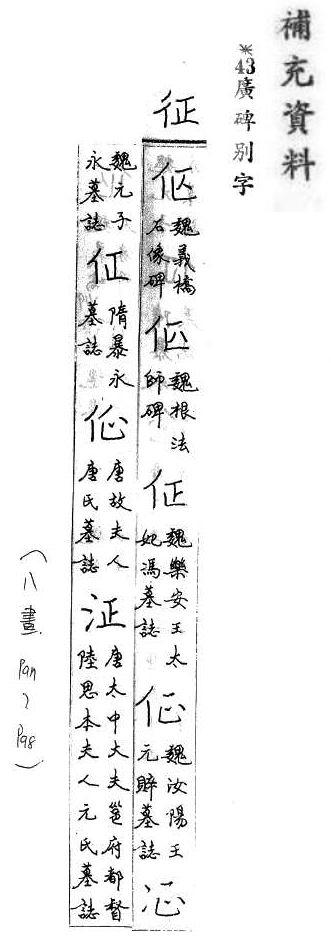 補充資料
※43廣碑別字
征
魏義橋
石像碑
魏根法
師碑
佂
魏樂安王太
妃馮墓誌
魏汝陽王
元賥墓誌
魏元子
永墓誌
佂
隋暴永
墓誌
唐故夫人
唐氏墓誌
泟
唐太中大夫邕府都督
陸思本夫人元氏墓誌
(八畫